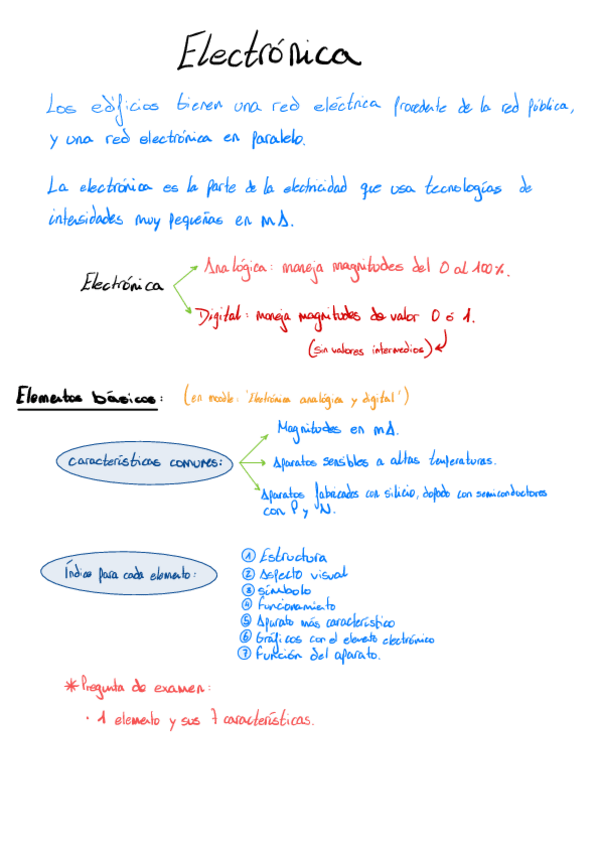 Electrónica
Los edificios tienen una red eléctrica procedente de la red pública,
y una red electrónica en paralelo.
La electrónica es la parte de la electricidad que usa tecnologías de
intensidades muy pequeñas en mA.
Electrónica
Analógica: maneja magnitudes del 0 al 100%.
Digital: maneja magnitudes de valor 0 ó 1.
(sin valores intermedios)
Elementos básicos: (en moodle: 'Electrónica analógica y digital')
características comunes:
Magnitudes en mA.
Aparatos sensibles a altas temperaturas.
Aparatos fabricados con silicio, dopado con semiconductores
con P y N.
Índice para cada elemento:
① Estructura
② Aspecto visual
③ símbolo
④ funcionamiento
⑤ Aparato más característico
⑥ Gráficos con el elemento electrónico
⑦ Función del aparato.
* Pregunta de examen:
· 1 elemento y sus 7 características.